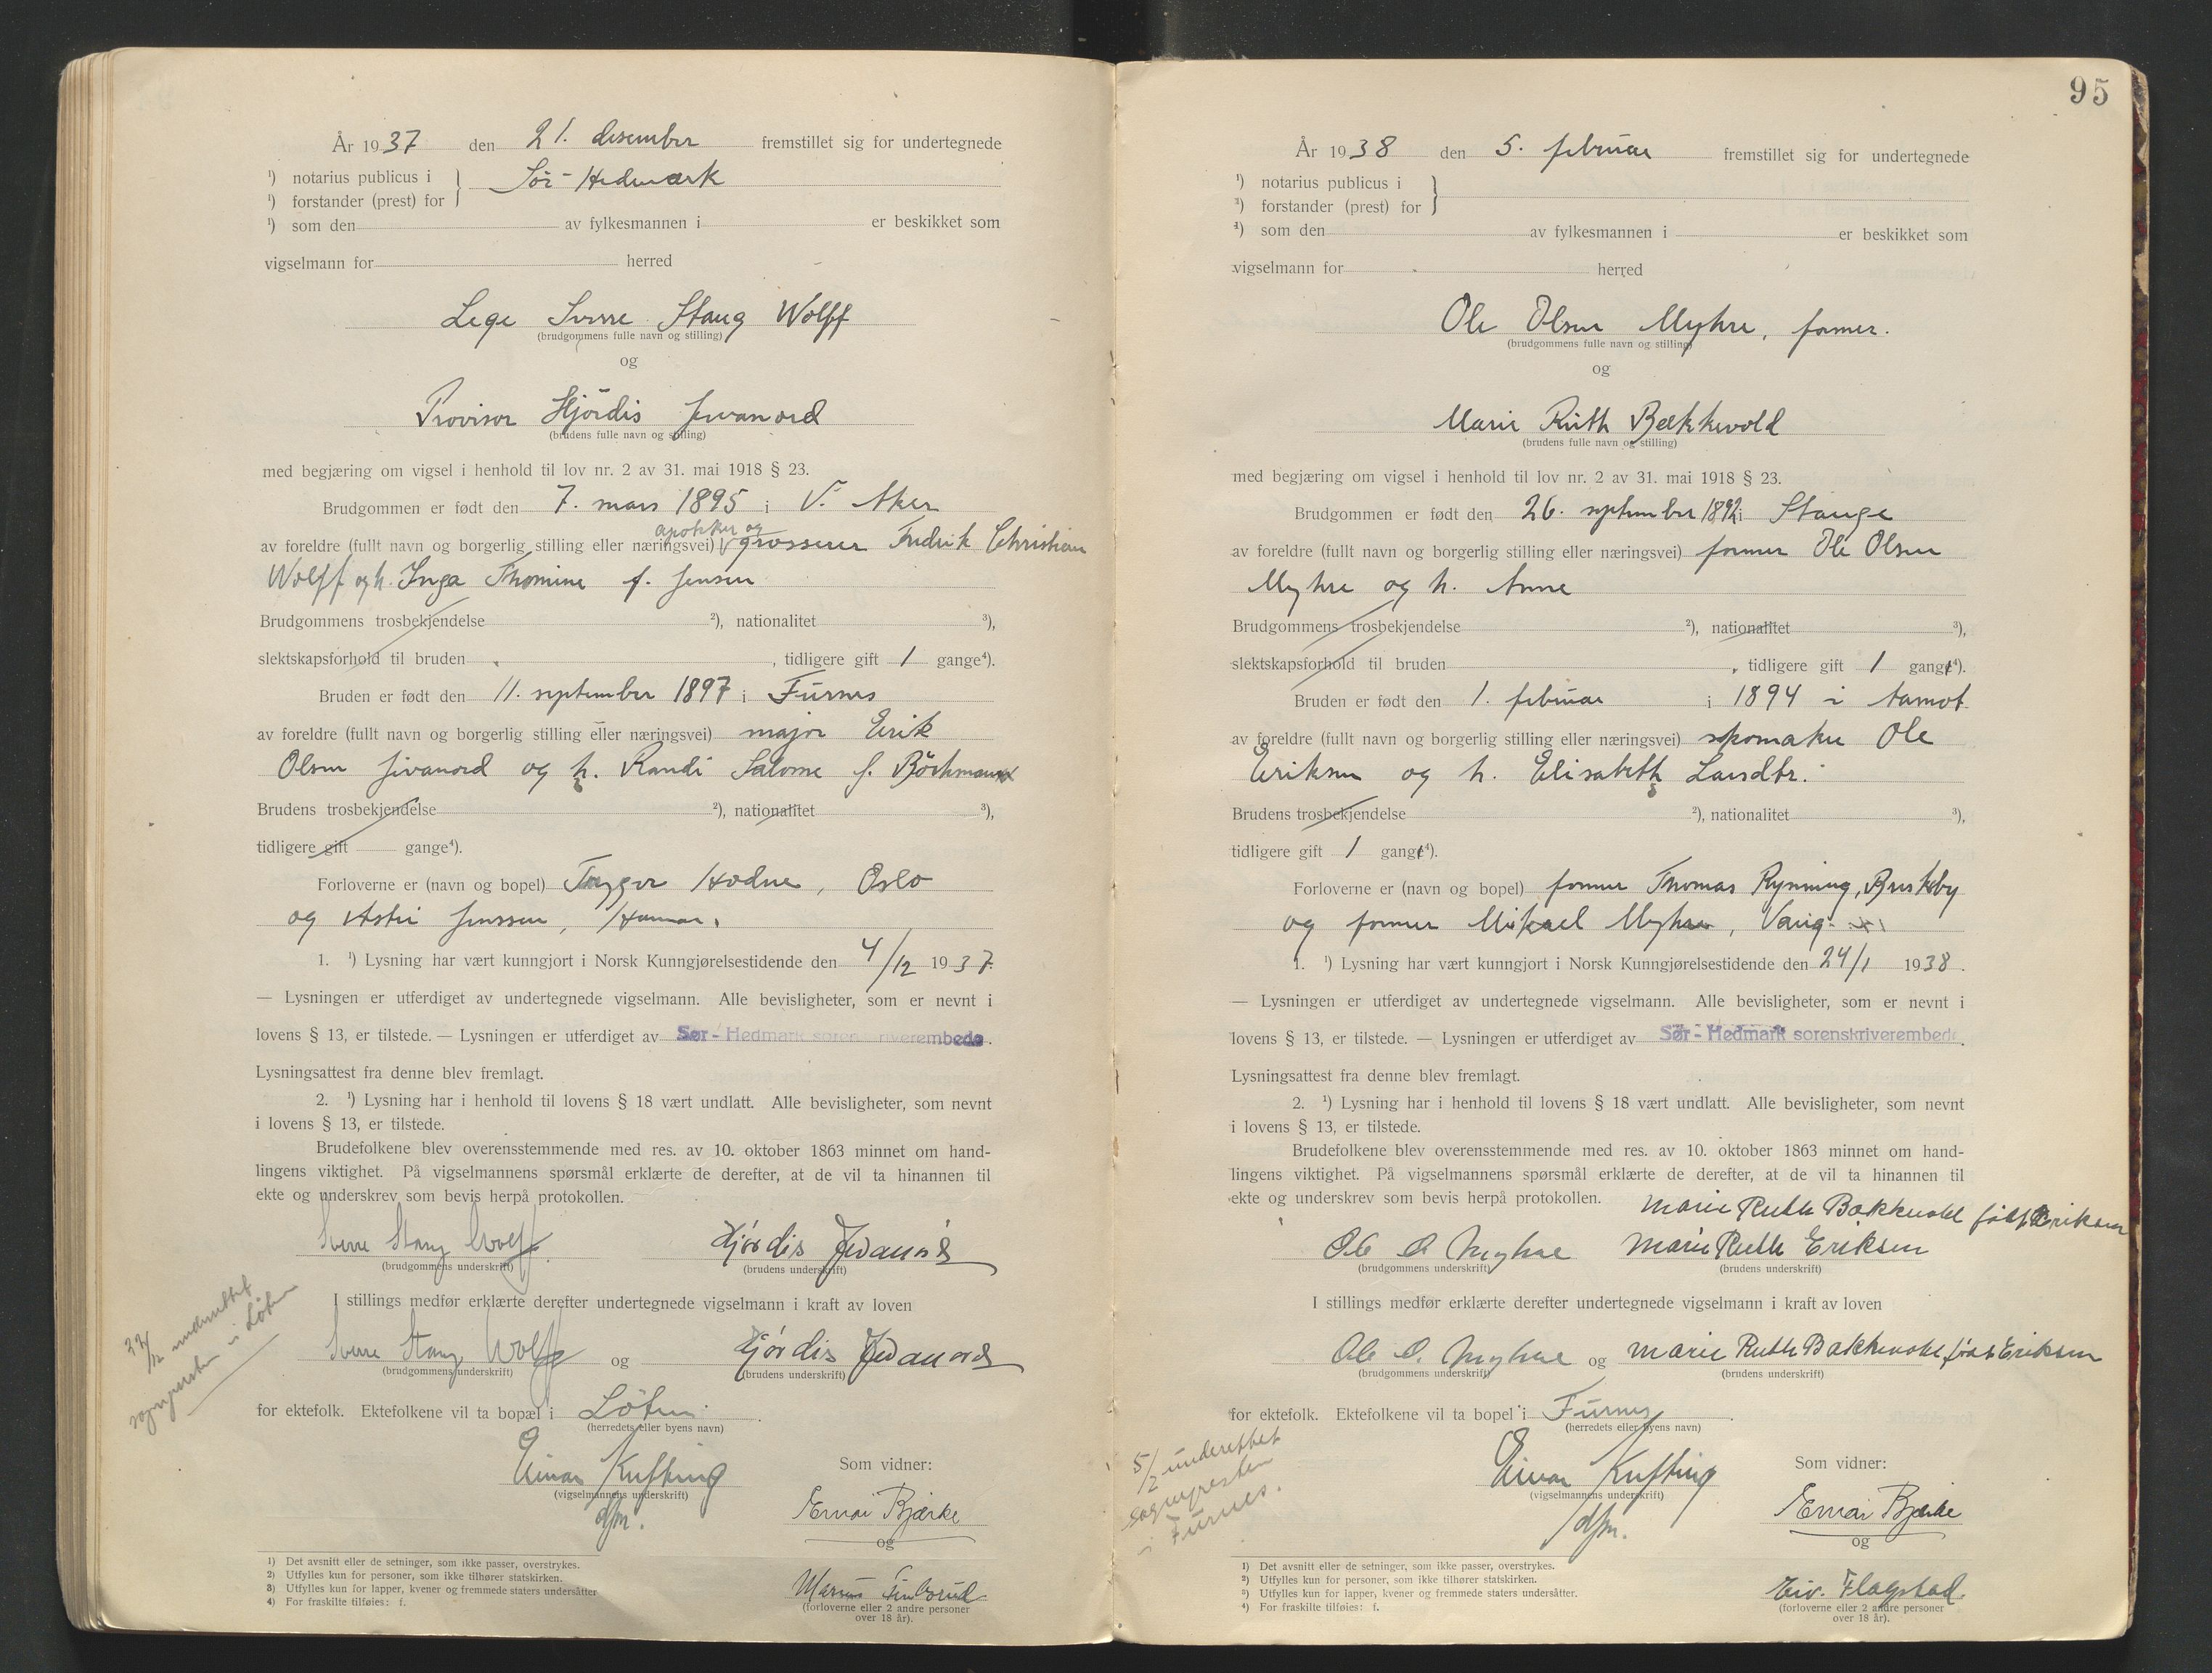 År 1937 den 21. desember fremstillet sig for undertegnede
¹) notarius publicus i } Sør-Hedmark
¹) forstander (prest) for
¹) som den av fylkesmannen i er beskikket som
vigselmann for herred
Lege Sverre Stang Wolff
(brudgommens fulle navn og stilling)
og
Provisor Hjördis Jevanord
(brudens fulle navn og stilling)
med begjæring om vigsel i henhold til lov nr. 2 av 31. mai 1918 § 23.
Brudgommen er født den 7. mars 1895 i V. Aker
apoteker og
av foreldre (fullt navn og borgerlig stilling eller næringsvei) grosserer Fredrik Christian
Wolff og h. Inga Thomine f. Jensen
Brudgommens trosbekjendelse ²), nationalitet ³),
slektskapsforhold til bruden , tidligere gift 1 gange⁴).
Bruden er født den 11. september 1897 i Furnes
av foreldre (fullt navn og borgerlig stilling eller næringsvei) major Erik
Olsen Jevanord og h. Randi Salome f. Böckmann
Brudens trosbekjendelse ²), nationalitet ³),
tidligere gift gange⁴).
Forloverne er (navn og bopel) Trygve Hodne, Oslo
og Astri Jenssen, Hamar.
1. ¹) Lysning har vært kunngjort i Norsk Kunngjørelsestidende den 4/12 1937.
— Lysningen er utferdiget av undertegnede vigselmann. Alle bevisligheter, som er nevnt i
lovens § 13, er tilstede. — Lysningen er utferdiget av Sør-Hedmark sorenskriverembede.
Lysningsattest fra denne blev fremlagt.
2. ¹) Lysning har i henhold til lovens § 18 vært undlatt. Alle bevisligheter, som nevnt
i lovens § 13, er tilstede.
Brudefolkene blev overensstemmende med res. av 10. oktober 1863 minnet om hand-
lingens viktighet. På vigselmannens spørsmål erklærte de derefter, at de vil ta hinannen til
ekte og underskrev som bevis herpå protokollen.
Sverre Stang Wolff Hjördis Jevanord
(brudgommens underskrift) (brudens underskrift)
I stillings medfør erklærte derefter undertegnede vigselmann i kraft av loven
Sverre Stang Wolff og Hjördis Jevanord
(brudgommens underskrift) (brudens underskrift)
for ektefolk. Ektefolkene vil ta bopæl i Löten.
(herredets eller byens navn)
Einar Kufting
(vigselmannens underskrift)
dfm.
Som vidner:
Ernar Bjærke
og
Marius
(forloverne eller 2 andre personer
over 18 år).
/12 underrettet
sogneprsten i Löten
1) Det avsnitt eller de setninger, som ikke passer, overstrykes.
2) Utfylles kun for personer, som ikke tilhører statskirken.
3) Utfylles kun for lapper, kvener og fremmede staters undersåtter
4) For fraskilte tilføies: f.
95
År 1938 den 5. februar fremstillet sig for undertegnede
¹) notarius publicus i }
¹) forstander (prest) for
¹) som den av fylkesmannen i er beskikket som
vigselmann for herred
Ole Olsen Myhre, farmer.
(brudgommens fulle navn og stilling)
og
Marie Ruth Bækkevold
(brudens fulle navn og stilling)
med begjæring om vigsel i henhold til lov nr. 2 av 31. mai 1918 § 23.
Brudgommen er født den 26. september 1892 i Stange
av foreldre (fullt navn og borgerlig stilling eller næringsvei) farmer Ole Olsen
Myhre og h. Anne
Brudgommens trosbekjendelse ²), nationalitet ³),
slektskapsforhold til bruden , tidligere gift 1 gang⁴).
Bruden er født den 1. februar i 1894 i Aamot
av foreldre (fullt navn og borgerlig stilling eller næringsvei) skomaker Ole
Eriksen og h. Elisabeth Larsdtr.
Brudens trosbekjendelse ²), nationalitet ³),
tidligere gift 1 gang⁴).
Forloverne er (navn og bopel) farmer Thomas Rynning, Brukeby
og farmer Mikael Myhre, Vang.
1. ¹) Lysning har vært kunngjort i Norsk Kunngjørelsestidende den 24/1 1938.
— Lysningen er utferdiget av undertegnede vigselmann. Alle bevisligheter, som er nevnt i
lovens § 13, er tilstede. — Lysningen er utferdiget av Sør-Hedmark sorenskriverembede.
Lysningsattest fra denne blev fremlagt.
2. ¹) Lysning har i henhold til lovens § 18 vært undlatt. Alle bevisligheter, som nevnt
i lovens § 13, er tilstede.
Brudefolkene blev overensstemmende med res. av 10. oktober 1863 minnet om hand-
lingens viktighet. På vigselmannens spørsmål erklærte de derefter, at de vil ta hinannen til
ekte og underskrev som bevis herpå protokollen.
Marie Ruth Bækkevold född Eriksen
Ole O Myhre Marie Ruth Eriksen
(brudgommens underskrift) (brudens underskrift)
I stillings medfør erklærte derefter undertegnede vigselmann i kraft av loven
Ole O. Myhre og Marie Ruth Bækkevold, född Eriksen
(brudgommens underskrift) (brudens underskrift)
for ektefolk. Ektefolkene vil ta bopel i Furnes
(herredets eller byens navn)
Einar Kufting
(vigselmannens underskrift)
dfm.
Som vidner:
Ernar Bjærke
og
Eiv. Flagstad.
(forloverne eller 2 andre personer
over 18 år).
5/2 underettet
sognepresten
i Furnes.
1) Det avsnitt eller de setninger, som ikke passer, overstrykes.
2) Utfylles kun for personer, som ikke tilhører statskirken.
3) Utfylles kun for lapper, kvener og fremmede staters undersåtter.
4) For fraskilte tilføies: f.